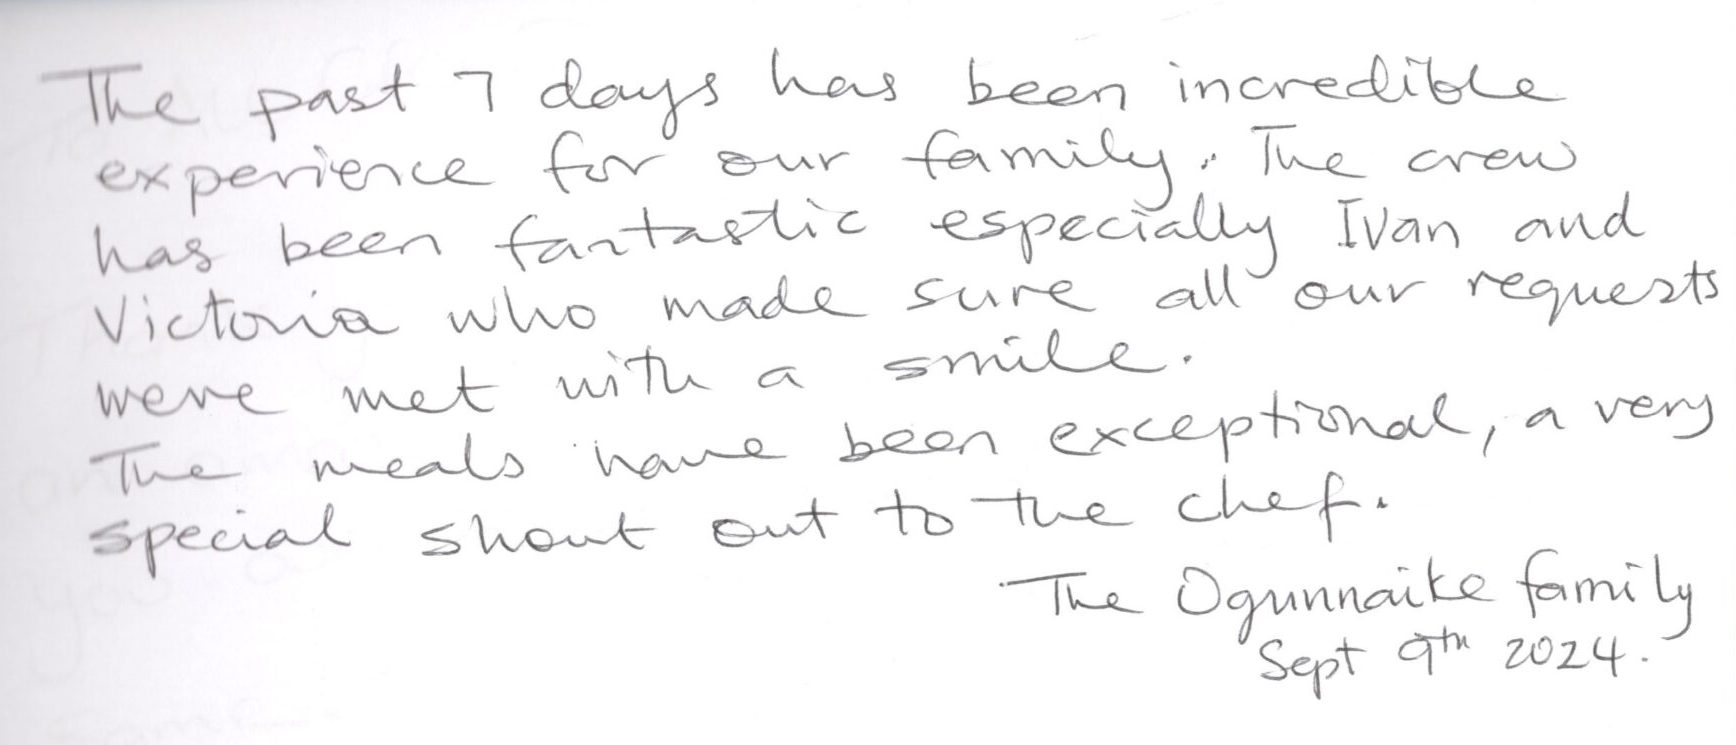 The past 7 days has been incredible
experience for our family. The crew
has been fantastic especially Ivan and
Victoria who made sure all our requests
were met with a smile.
The meals have been exceptional, a very
special shout out to the chef.
The Ogunnaike family
Sept 9th 2024.